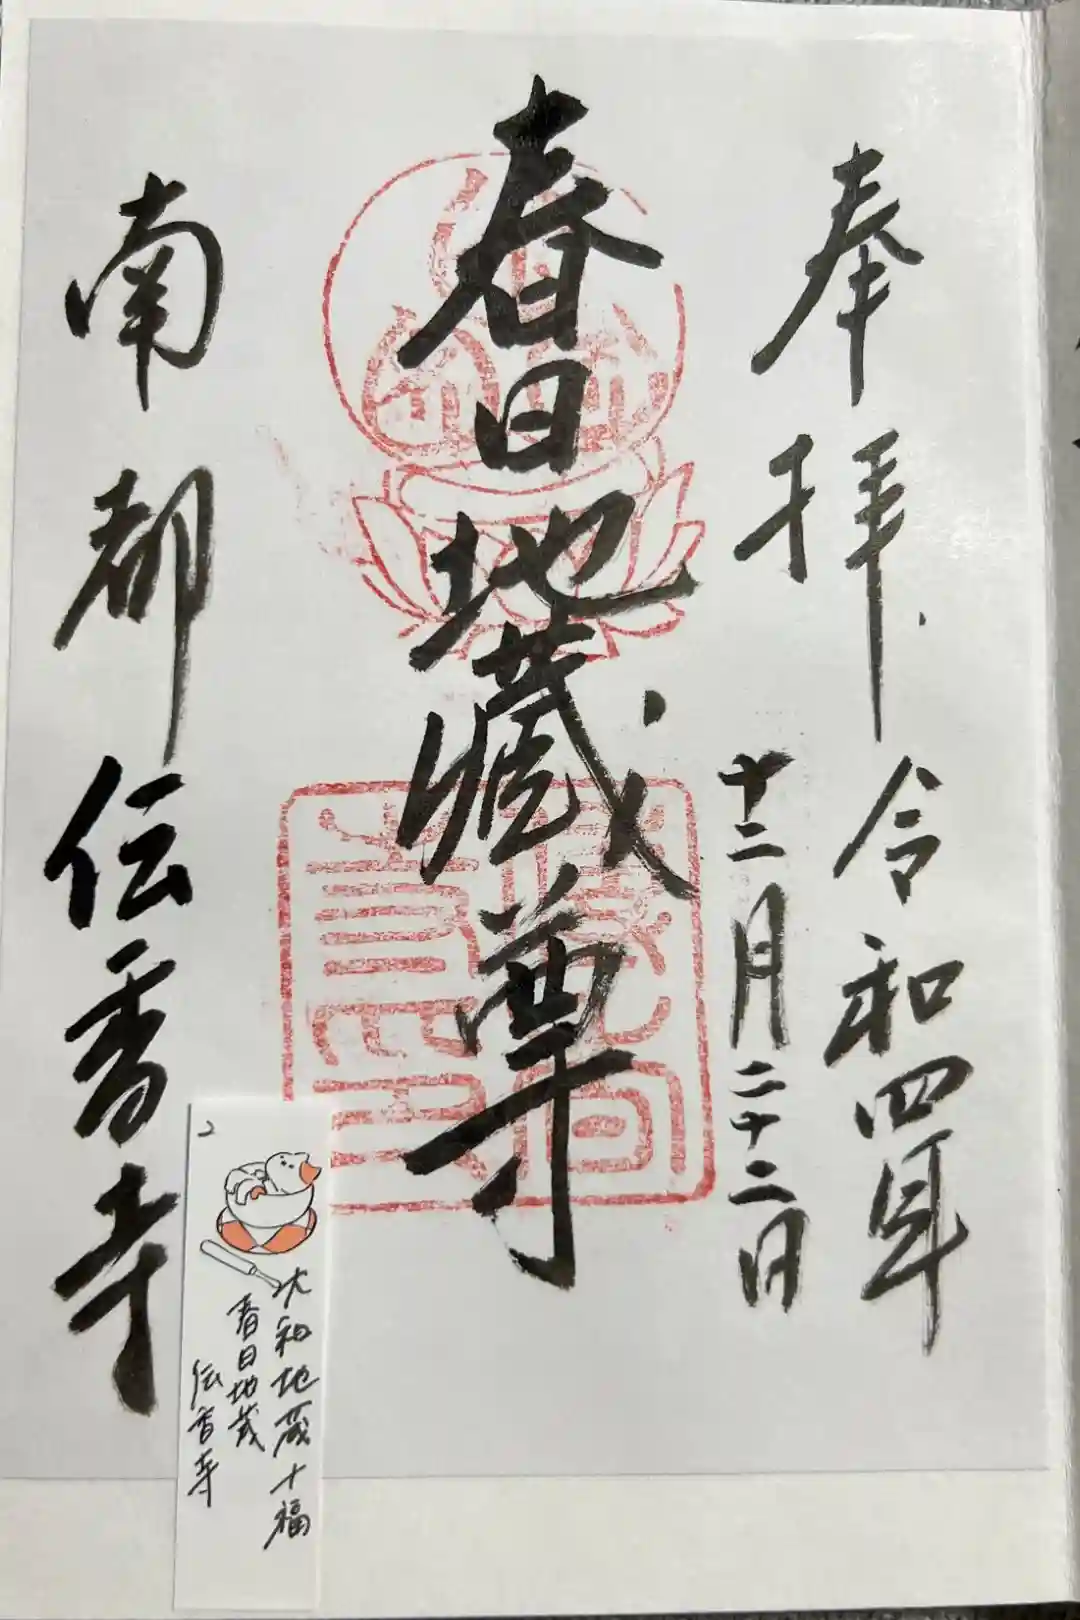 奉拝
令和四年
十二月二十二日
春日地蔵尊
南都
伝香寺
大和地蔵十福
春日地蔵
伝香寺